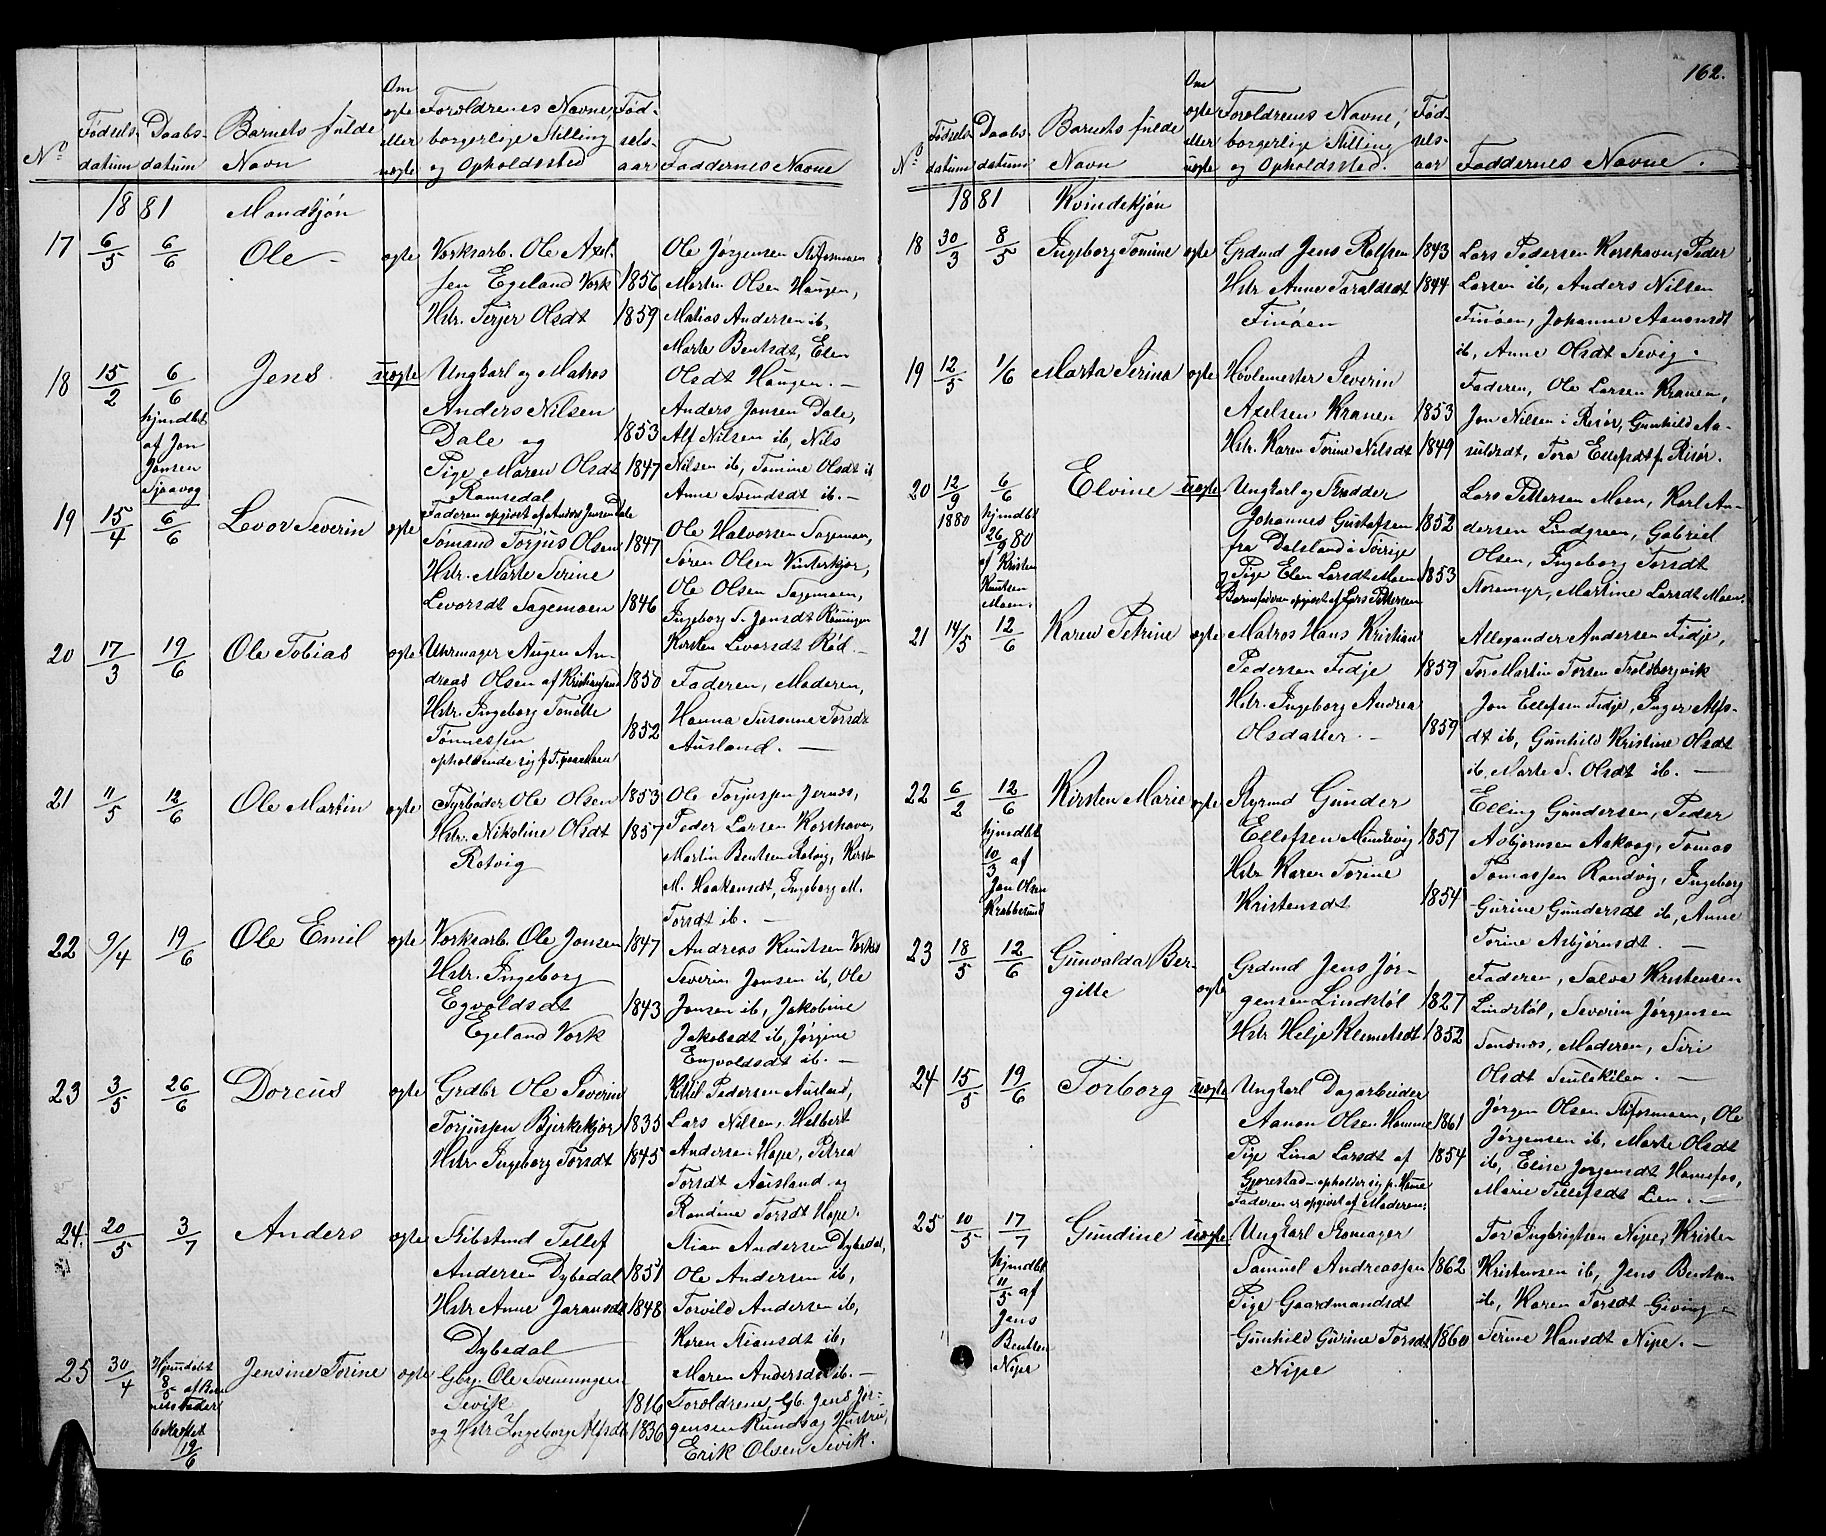 162.
No
Fødsels-
datum
Daabs-
datum
Barnets fulde
Navn
Om
ægte
eller
uægte
Forældrenes Navne,
borgerlige Stilling
og Opholdssted
Fød-
sels-
aar
Faddernes Navne
1881 Mandkjøn
17 6/5 6/6 Ole - ægte
Værksarb. Ole Axel-
sen Egeland Værk 1856
Hstr. Terjer Olsdt 1859
Ole Jørgensen Stifosmoen
Morten Olsen Haugen,
Matias Andersen ib,
Marte Bentsdt, Elen
Olsdt Haugen. -
18 15/2 6/6 Jens uægte
hjmdbt
af Jon
Jonsen
Sjaavaag
Ungkarl og Matros
Anders Nilsen
Dale og 1853
Pige Maren Olsdt 1847
Ramsedal
Faderen opgivet af Anders Jensen Dale
Anders Jonsen Dale,
Alf Nilsen ib, Nils
Nilsen ib, Tomine Olsdt ib
Anne Svendsdt ib. -
19 15/4 6/6 Levor Severin ægte
Sømand Torjus Olsen 1847
Hstr. Marte Serine
Levorsdt Sagemoen 1846
Ole Halvorsen Sagemoen,
Søren Olsen Vinterkjær,
Ole Olsen Sagemoen,
Ingeborg S. Jonsdt Røningen
Kirsten Levorsdt Rød. -
20 17/3 19/6 Ole Tobias ægte
Uhrmager Augen An-
dreas Olsen af Kristiansand 1850
Hstr. Ingeborg Tonette
Tønnessen 1852
opholdende sig p. T. paa Moen
Faderen, Moderen,
Hanna Susanna Torsdt
Ausland. -
21 11/5 12/6 Ole Martin ægte
Fyrbøder Ole Olsen 1853
Hstr. Nikoline Olsdt 1857
Rotvig
Ole Torjussen Jernæs,
Peder Larsen Korshavn,
Martin Bentsen Rotvig, Kirsten
M. Haakensdt, Ingeborg M.
Torsdt ib. -
22 9/4 19/6 Ole Emil ægte
Værksarb. Ole Jonsen 1847
Hstr. Ingeborg
Egvoldsdt 1843
Egeland Værk
Andreas Knutsen Værket
Severin Jonsen ib, Ole
Jonsen ib, Jakobine
Jakobsdt ib, Jørgine
Engvoldsdt ib. -
23 3/5 26/6 Dorcus ægte
Grdbr Ole Severin
Torjussen Bjerkekjær 1835
Hstr. Ingeborg Torsdt 1845
Kittil Pedersen Ausland,
Lars Nilsen, Helbert
Andersen Hope, Petrea
Torsdt Ausland og
Randine Torsdt Hope.
24. 20/5 3/7 Anders ægte
Skibstmd Tellef
Andersen Dybedal 1851
Hstr Anne Jaransdt 1848
Dybedal
Stian Andersen Dybedal,
Ole Andersen ib,
Torvild Andersen ib,
Karen Stiansdt ib,
Maren Andersdt ib. -
25 30/4 Jensine Torine ægte
Hjemdøbt
8/5 af Bar
nets Fader
bekræftet
19/6
Gbrg. Ole Svenningsen
Sevik 1816
og Hstr Ingeborg Alfsdt 1836
Forældrene, Gb. Jens Jør-
gensen Rund og Hustru,
Erik Olsen Sevik.
No
Fødsels-
datum
Daabs-
datum
Barnets fulde
Navn
Om
ægte
eller
uægte
Forældrenes Navne,
borgerlige Stilling
og Opholdssted.
Fød-
sels-
aar
Faddernes Navne.
1881 Kvindekjøn
18 30/3 8/5 Ingeborg Tomine ægte
Grdmd Jens Rolfsen 1843
Hstr Anne Taraldsdt 1844
Finøen
Lars Pedersen Korshavn, Peder
Larsen ib, Anders Nilsen
Finøen, Johanne Aanonsdt
ib, Anne Olsdt Sevig.
19 12/5 1/6 Marta Serina ægte
Høvlemester Severin
Axelsen Kranen 1853
Hstr. Karen Torine Nilsdt 1849
Faderen, Ole Larsen Kranen,
Jon Nilsen i Risør, Gunhild Aa-
sulsdt, Tora Ellefsdt f. Risør.
20 12/9 6/6 Elvine uægte
1880 hjmdbt
26/9 80
af Kristen
Knutsen
Moen.
Ungkarl og Skrædder
Johannes Gustafsen 1852
fra Dalsland i Sverige
og Pige Elen Larsdt Moen 1853
Barnefaderen opgivet af Lars Pettersen
Lars Pettersen Moen, Karl An-
dersen Lindgreen, Gabriel
Olsen, Ingeborg Torsdt
Noremyr, Martine Larsdt Moen.
21 14/5 12/6 Karen Petrine ægte
Matros Hans Kristian
Pedersen Fidje 1859
Hstr. Ingeborg Andrea
Olsdatter. - 1859
Allexander Andersen Fidje,
Tor Martin Torsen Troldbergvik
Jon Ellefsen Fidje, Inger Alfs-
dt ib, Gunhild Kristine Olsdt
ib, Marte S. Olsdt ib. -
22 6/2 12/6 Kirsten Marie ægte
hjmdbt
10/3 af
Jon Olsen
Krabbesund
Styrmd Gunder
Ellefsen Munkevig 1857
Hstr Karen Torine
Kristensdt 1854
Elling Gundersen, Peder
Asbjørnsen Aakvaag, Tomas
Tomassen Randvig, Ingeborg
Gurine Gundersdt ib, Anne
Torine Asbjørnsdt. -
23 18/5 12/6 Gunvalda Ber-
gitte ægte
Grdmd Jens Jør-
gensen Lindstøl 1827
Hstr Helje Klemetsdt 1852
Faderen, Salve Kristensen
Lindstøl, Severin Jørgensen
Sandnæs, Moderen, Siri
Olsdt Teulekilen. -
24 15/5 19/6 Torborg uægte
Ungkarl Dagarbeider
Aanon Olsen Hamme 1861
Pige Lina Larsdt af 1854
Gjerestad - opholder sig p.
Faderen er opgivet af Moderen.
Jørgen Olsen Stifosmoen, Ole
Jørgensen ib, Marte Olsdt
ib, Elise Jørgensdt Hammefos,
Marie Tellefsdt Lien. -
25 10/5 17/7 Gundine uægte
hjmdbt
11/5 af
Jens
Bentsen
Nipe
Ungkarl Skomager
Samuel Andreassen 1862
Pige Gaardmandsdt
Gunhild Gurine Torsdt 1860
Nipe
Tor Ingbrigtsen Nipe, Kristen
Kristensen ib, Jens Bentsen
ib, Karen Torsdt Giving
Serine Hansdt Nipe. -